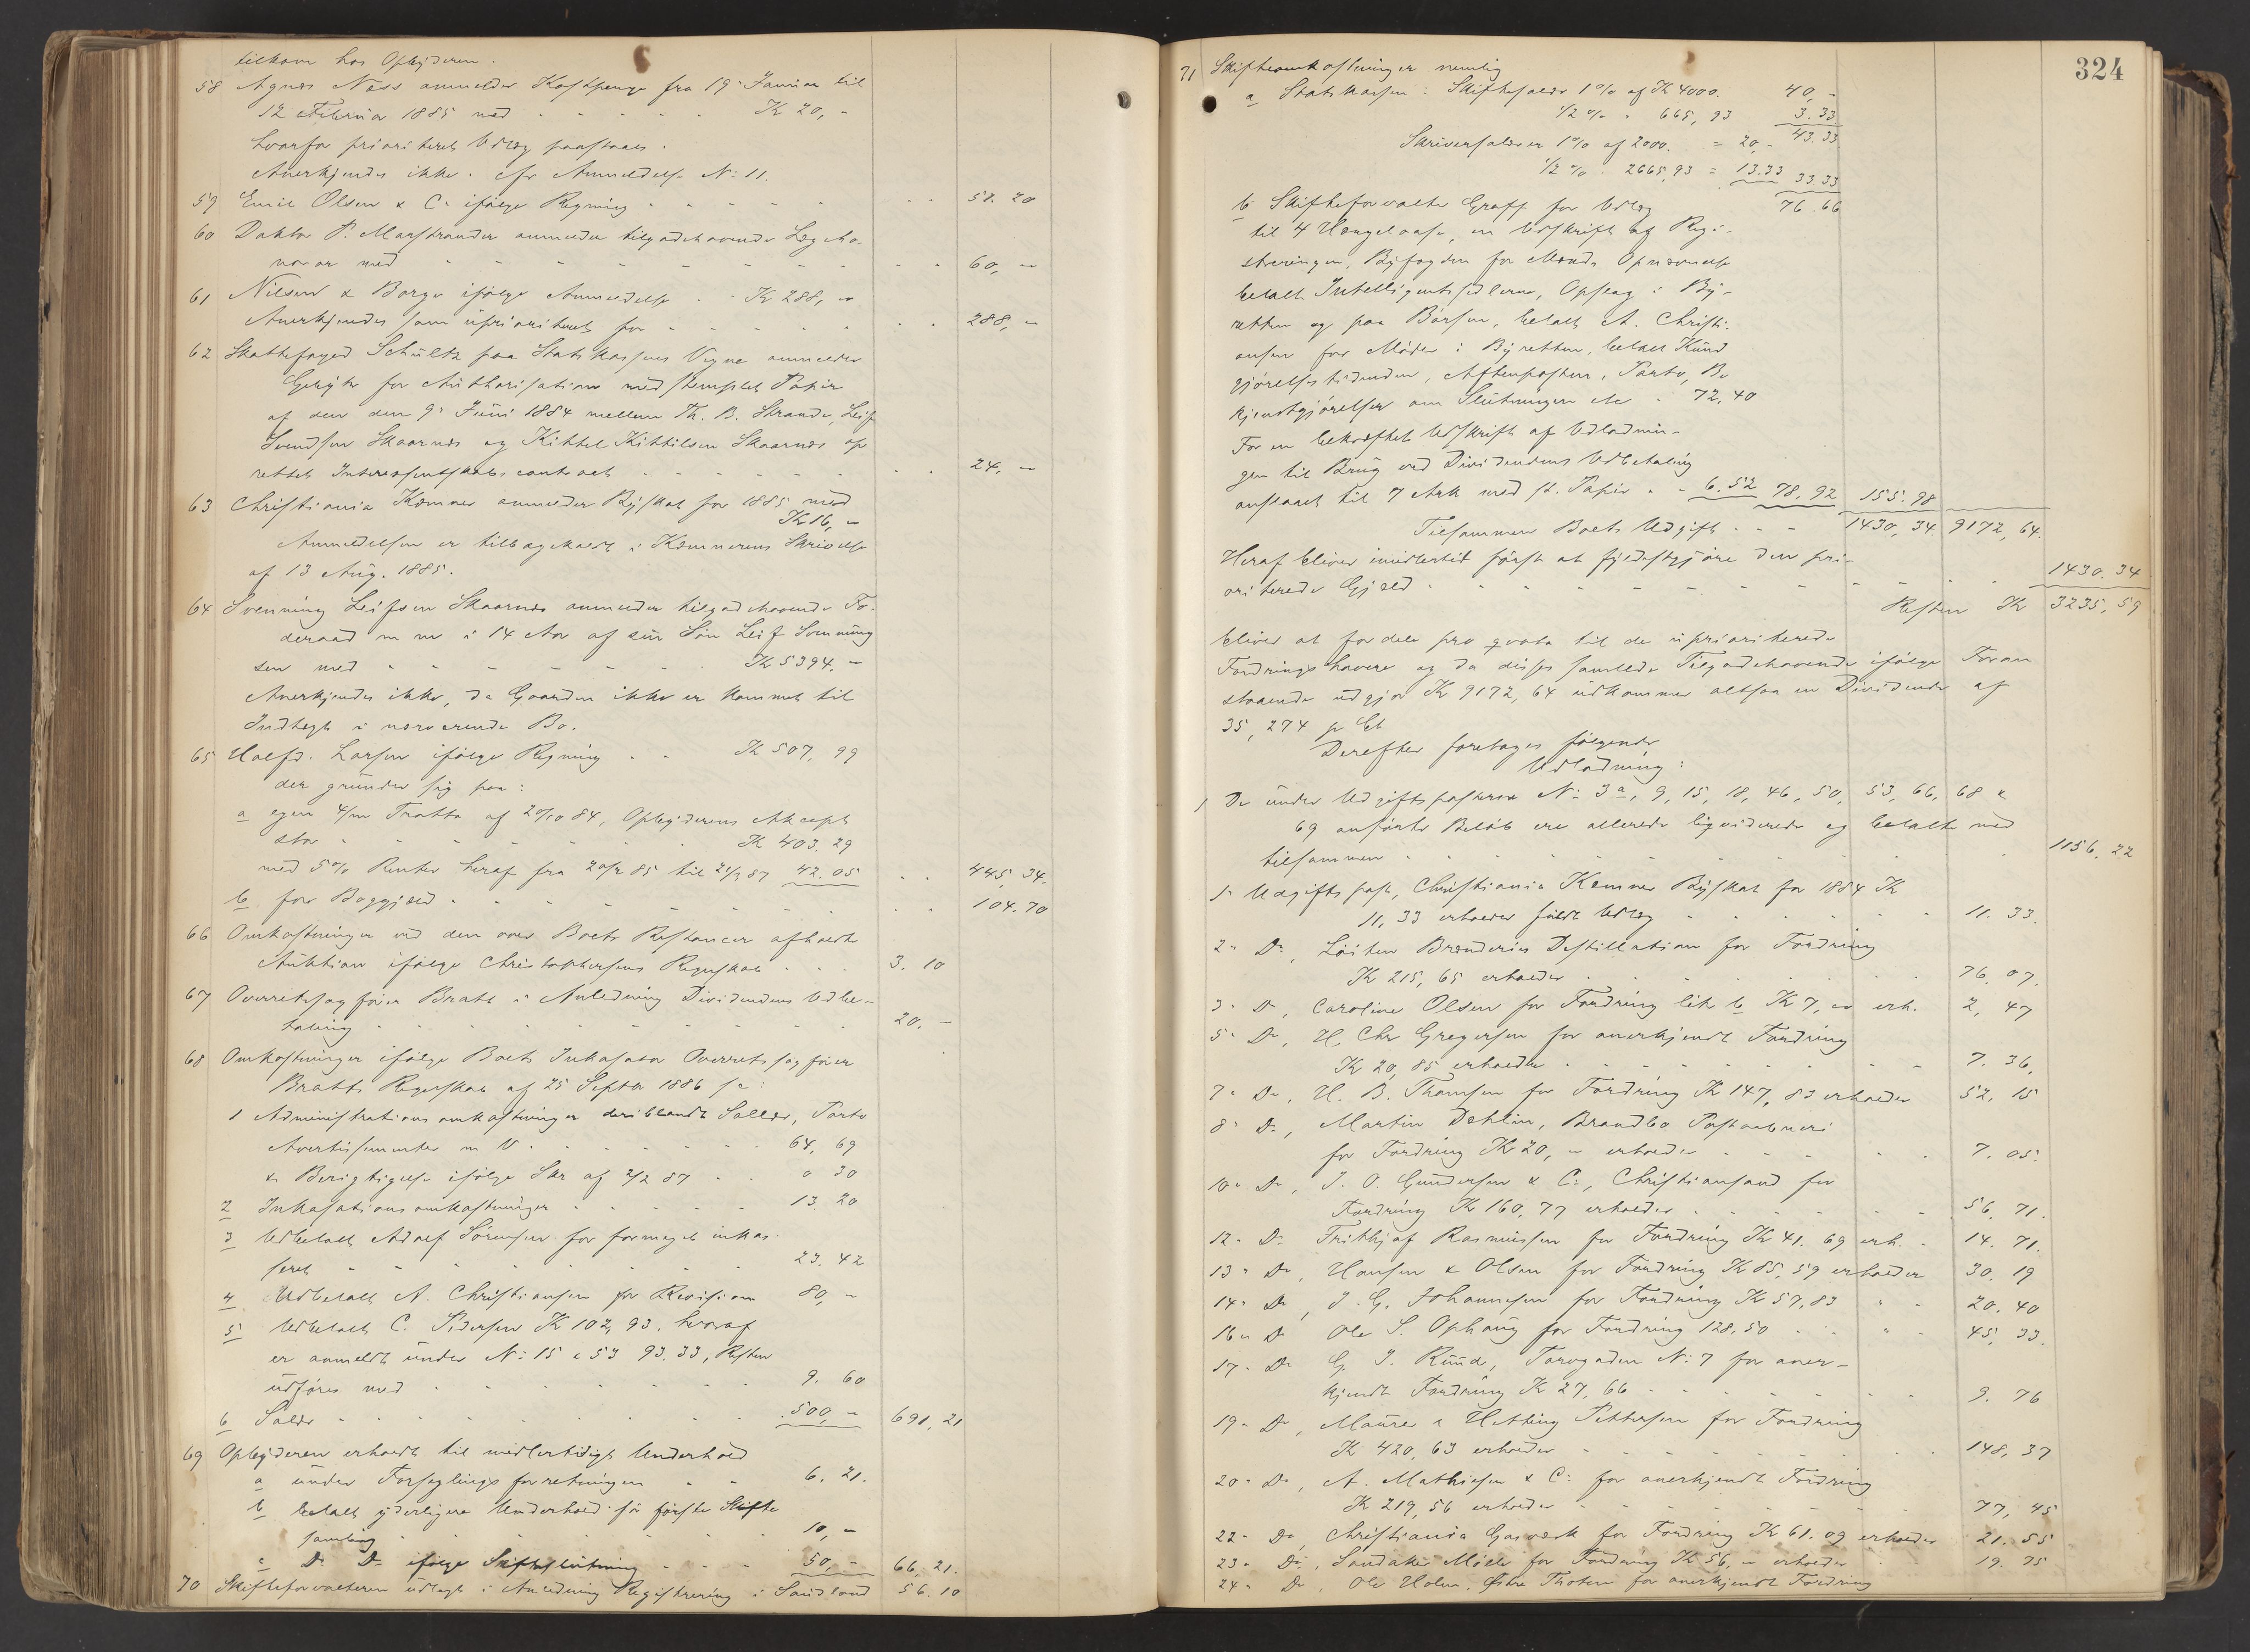 tilkom hos Opbyderen.
58 Agnes Næss anmelder Kostpenge fra 19 Januar til
12 Februar 1885 med - - - Kr 20, -
hvorfor prioriteret Udlæg paastaaes.
Anerkjendes ikke. cfr Anmeldelse No 11.
59 Emil Olsen & Co ifølge Regning - - - 58. 20
60 Doktor P. Marstrander anmelder tilgodehavende Lægeho-
norar med - - - 60, -
61 Nilsen & Borge ifølge Anmeldelse - - Kr 288, -
Anerkjendes som uprioriteret for - - - 288, -
62 Skattefoged Schultz paa Statskassens Vegne anmelder
Gebyr for Authorisation med stemplet Papir
af den den 9de Juni 1884 mellem Th. B. Strande, Leif
Svendsen Skaarnæs og Kittel Kittilsen Skaarnæs op
rettet Interessentskabs contract - - - 24, -
63 Christiania Kæmner anmelder Byskat for 1885 med
Kr 16, -
Anmeldelsen er tilbagekaldt i Kæmnerens Skrivelse
af 13 Aug. 1885.
64 Svenning Leifsen Skaarnæs anmelder tilgodehavende Fo-
deraad m m i 14 Aar af sin Søn Leif Svenning
sen med - - - Kr 5394. -
Anerkjendes ikke, da Gaarden ikke er kommet til
Indtægt i nærværende Bo.
65 Halfd. Larsen ifølge Regning - - Kr 507, 99
der grunder sig paa:
a egen 4/m Tratta af 20/10 84, Opbyderens Akcept
stor - - - Kr 403. 29
med 5% Renter heraf fra 20/2 85 til 21/3 87 42. 05 - - 445, 34.
b for Boggjæld - - - 104. 70
66 Omkostninger ved den over Boets Restancer afholdte
Auktion ifølge Christophersens Regnskab - - - 3. 10
67 Overretssagfører Bratt i Anledning Dividendens Udbe-
taling - - - 20. -
68 Omkostninger ifølge Boets Inkasator Overretssagfører
Bratts Regnskab af 25 Septbr 1886 sc:
1 Administrations omkostninger deriblandt Sallær, Porto
Avertissementer m V - - - 64, 69
& Berigtigelse ifølge Skr af 2/2 87 - - 0 30
2 Inkasations omkostninger - - - 13. 20
3 Udbetalt Adolf Sörensen for formeget inkas
seret - - - 23. 42
4 Udbetalt A. Christiansen for Revision 80, -
5 Udbetalt C. Pedersen Kr 102, 93. hvoraf
er anmeldt under No 15 & 53 93. 33, Resten
udføres med - - - 9. 60
6 Salær - - - 500, - 691, 21
69 Opbyderen erholdt til midlertidigt Underhold
a under Forseglings forretningen - - 6. 21.
b betalt yderligere Underhold før første Skifte
samling - - - 10, -
c Do Do ifølge Skifteslutning - - - 50, - 66, 21.
70 Skifteforvalteren udlagt i Anledning Registrering i Sandland 56. 10
324
71 Skifteomkostninger nemlig
a Statskassen: Skiftesalær 1% af Kr 4000. 40, -
1/2 % " 665, 93 3. 33
Skriversalærer 1% af 2000. = 20, - 43. 33
1/2 % " 2665, 93 = 13.33 33.33
b Skifteforvalter Graff for Udlæg 76. 66
til 4 Hængelaase, en Udskrift af Regi-
streringen, Byfogden for Mænds Opnævnelse
betalt Intelligentssedlerne, Opslag i By-
retten og paa Børsen, betalt A. Christi-
ansen for Møder i Byretten, betalt Kund
gjørelsestidenden, Aftenposten, Porto, Be
kjendtgjørelser om Slutningen etc - 72, 40
For en bekræftet Udskrift af Udlodnin-
gen til Brug ved Dividendens Udbetaling
anslaaet til 7 Ark med st. Papir - - 6. 52 78, 92 155. 98
Tilsammen Boets Udgift - - - 1430, 34. 9172, 64.
Heraf bliver imidlertid først at fyldestgjøre den pri-
oriterede Gjæld - - - 1430. 34
Resten Kr 3235, 59
bliver at fordele pro qvota til de uprioriterede
Fordringshavere og da disses samlede Tilgodehavende ifølge Foran
staaende udgjør Kr 9172, 64 udkommer altsaa en Dividende af
35, 274 pr Ct
Derefter foretages følgende
Udlodning:
1 De under Udgiftsposterne No 3a, 9, 15, 18, 46, 50, 53, 66, 68 &
69 anførte Beløb ere allerede liqviderede og betalte med
tilsammen - - - 1156, 22
1" Udgifts post, Christiania Kæmner Byskat for 1884 Kr
11, 33 erholder fuldt Udlæg - - - 11. 33.
2" Do, Löiten Brænderies Destillation for Fordring
Kr 215, 65 erholder - - - 76. 07.
3" Do, Caroline Olsen for Fordring litr b Kr 7, - erh. 2, 47
5" Do, H. Chr Gregersen for anerkjendt Fordring
Kr 20, 85 erholder - - - 7. 36,
7" Do, H. B. Thomsen for Fordring Kr 147, 83 erholder 52, 15
8" Do, Martin Dehlin, Brandbo Postaabneri
for Fordring Kr 20, - erholder - - - 7. 05.
10" Do, J. O. Gundersen & Co, Christiansand for
Fordring Kr 160, 77 erholder - - - 56, 71.
12" Do Frithjof Rasmussen for Fordring Kr 41. 69 erh. - 14. 71.
13" Do, Hansen & Olsen for Fordring Kr 85, 59 erholder 30. 19
14" Do, J. G. Johannesen for Fordring Kr 57, 83 " - 20. 40
16" Do Ole S. Ophaug for Fordring 128, 50 - - " - 45, 33.
17" Do G. J. Ruud, Torvgaden No 7 for aner-
kjendt Fordring Kr 27, 66 - - - 9. 76
19" Do, Maurer & Hetting Pettersen for Fordring
Kr 420, 63 erholder - - - 148, 37
20" Do, A. Mathiesen & Co for anerkjendt Fordring
Kr 219, 56 erholder - - - 77, 45
22" Do, Christiania Gasværk for Fordring Kr 61. 09 erholder 21. 55
23" Do, Sandaker Mölle for Fordring Kr 56, - erholder 19. 75
24" Do, Ole Holm, Østre Thoten for anerkjendt Fordring